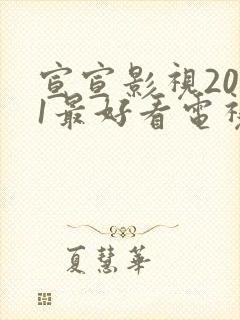 宣宣影視20
1最好看電視
夏慧華